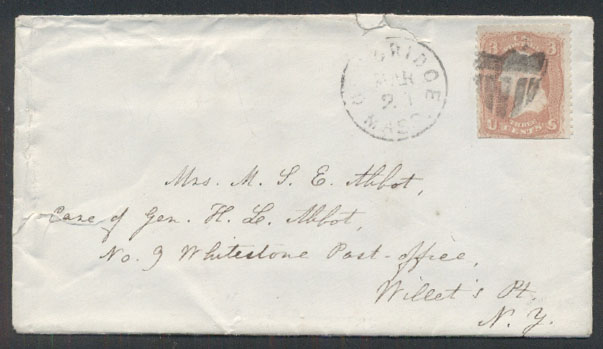 CAMBRIDGE MASS.
MAR
3
3
U S
THREE
CENTS
Mrs. M. S. E. Abbot,
Care of Gen. H. L. Abbot,
No. 9 Whitestone Post-office,
Willet's Pt.
N. Y.